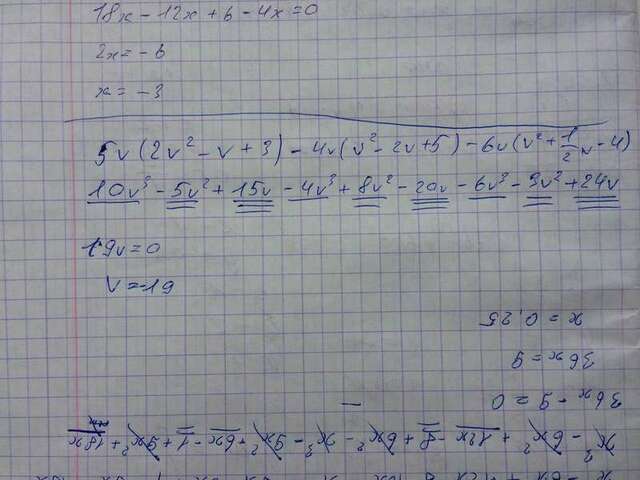 18x - 12x + 6 - 4x = 0
2x = -6
x = -3
5v(2v² - v + 3) - 4v(v² - 2v + 5) - 6v(v² + 1/2 v - 4)
10v³ - 5v² + 15v - 4v³ + 8v² - 20v - 6v³ - 3v² + 24v
19v = 0
v = -19
x = 0,25
36x = 9
36x - 9 = 0